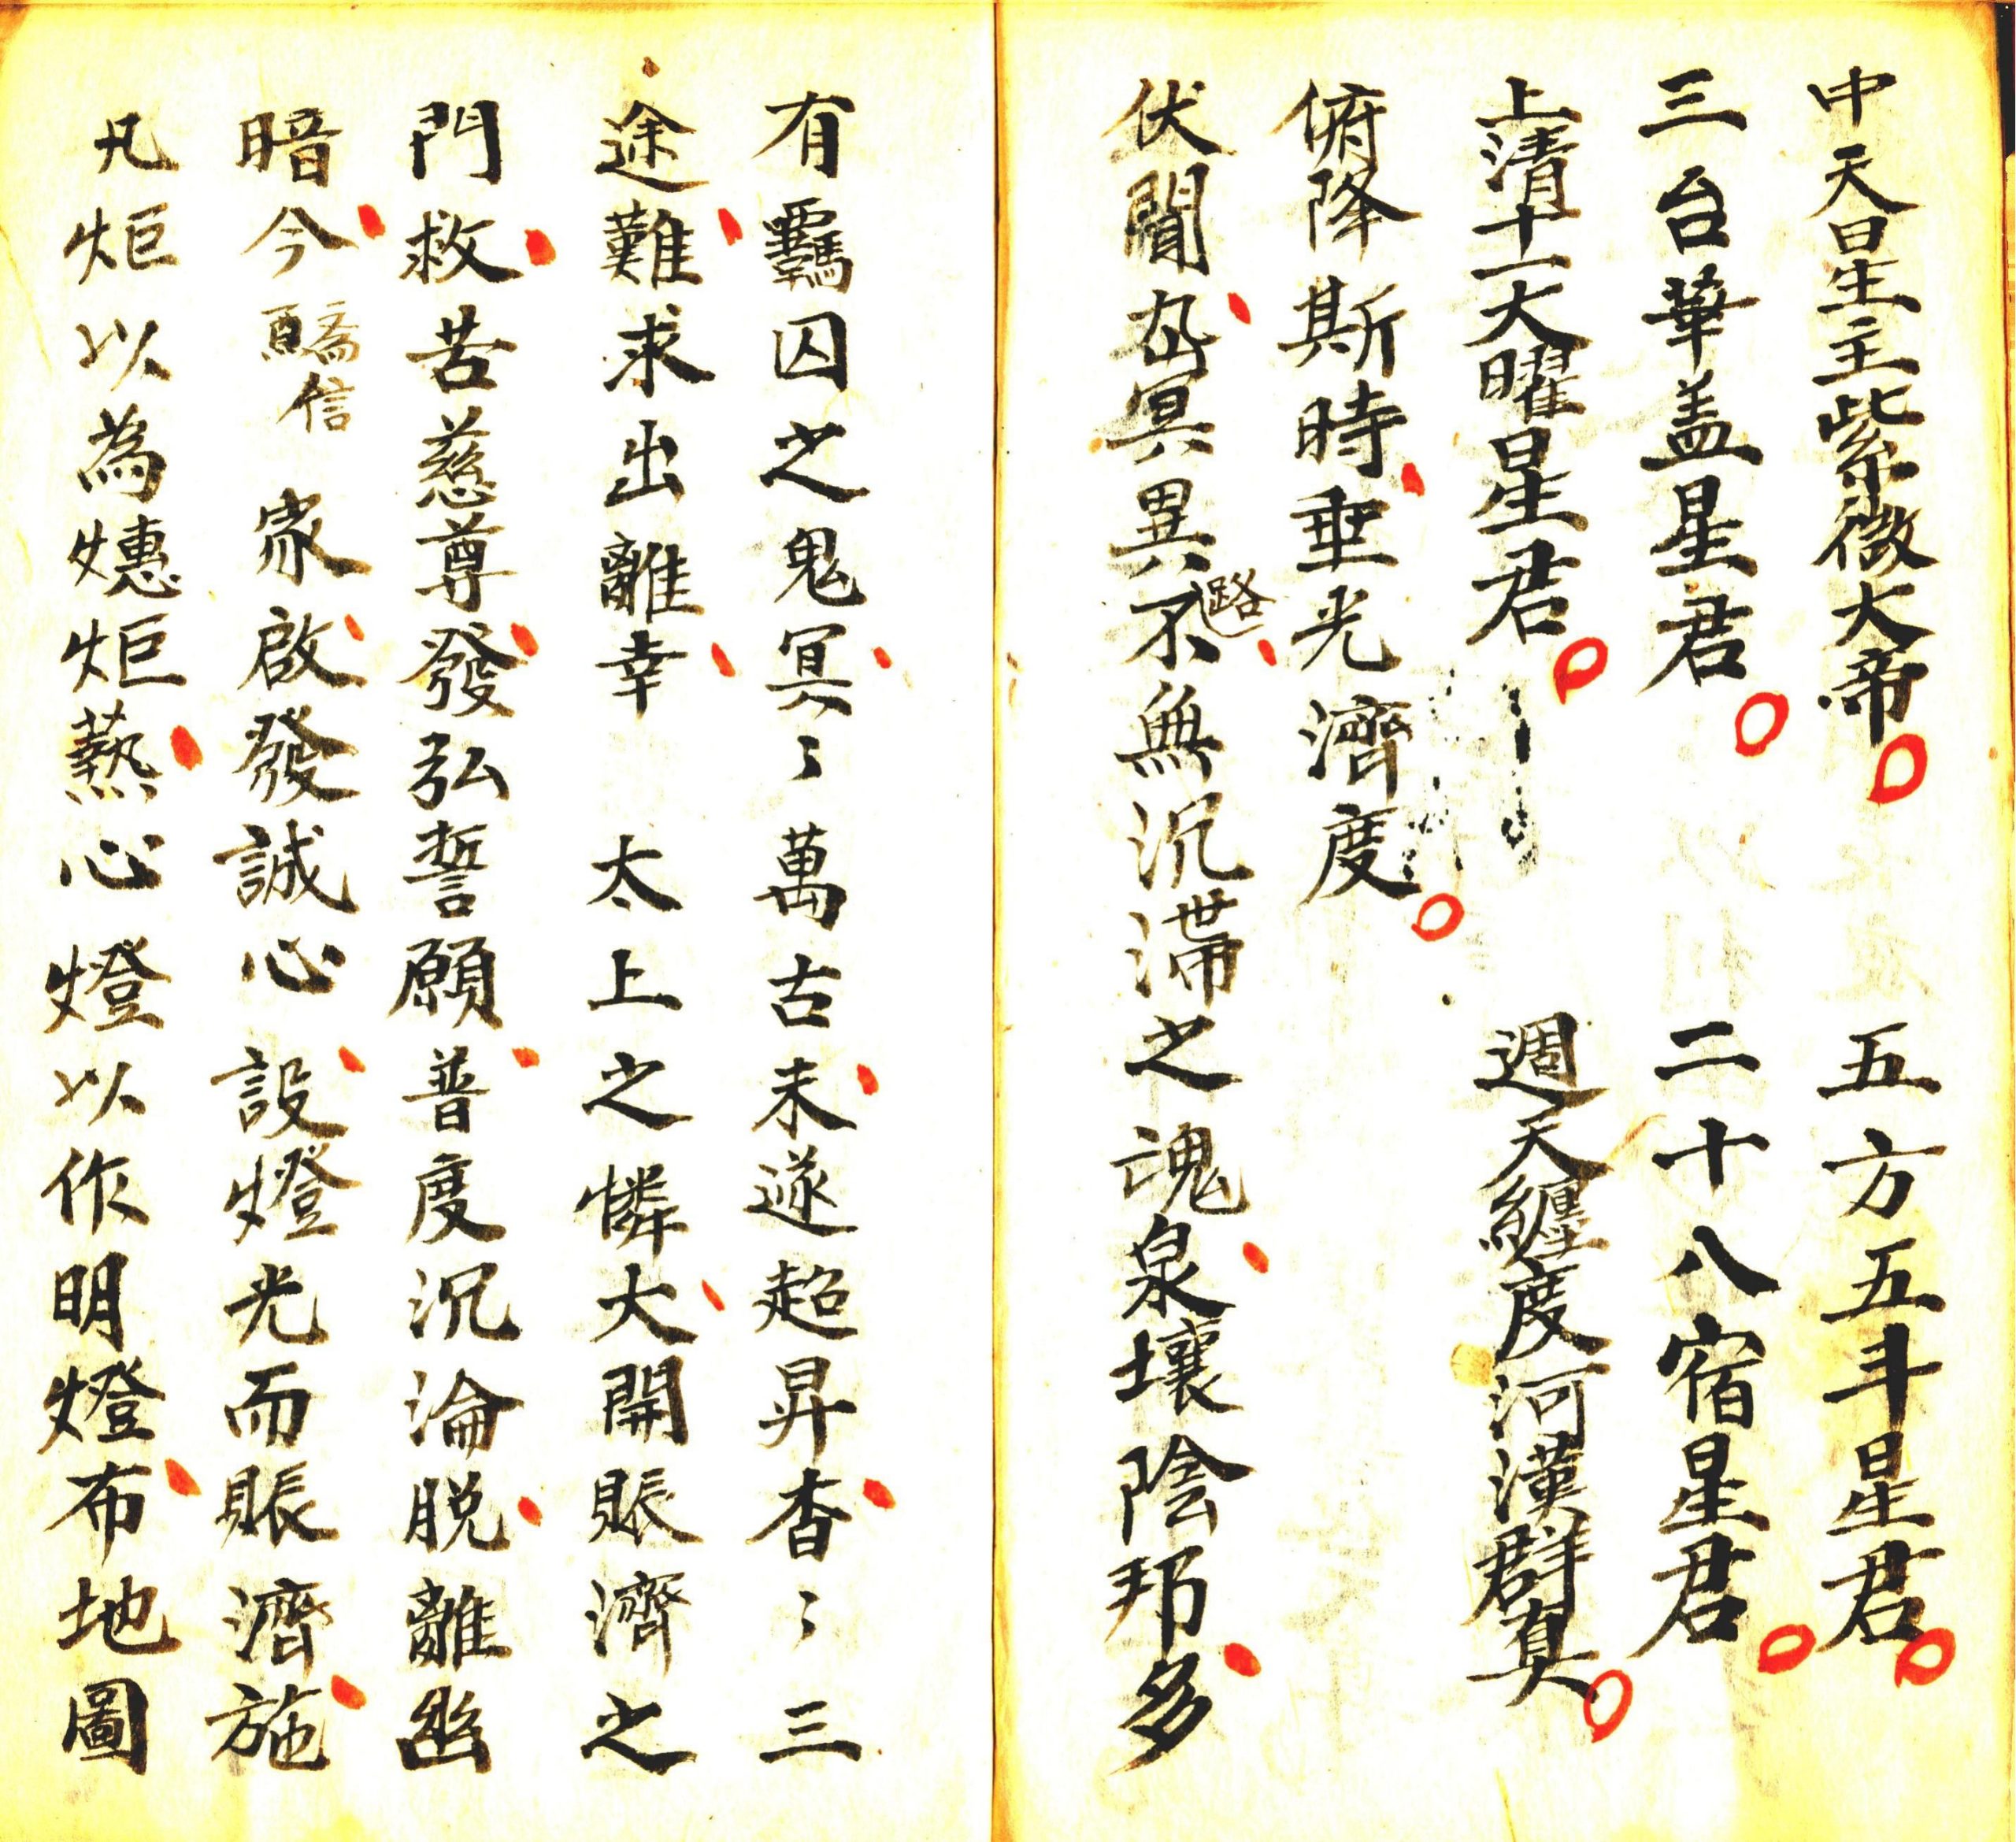 中天星主紫微大帝 五方五斗星君
三台華盖星君 二十八宿星君
上清十一大曜星君 週天纏度河漢群真
俯降斯時垂光濟度
伏聞冥異路不無沉滯之魂泉壤陰邦多
有羈囚之鬼冥〻萬古未遂超昇杳〻三
途難求出離幸 太上之憐大開賬濟之
門救苦慈尊發弘誓願普度沉淪脱離幽
暗今 信 家啟發誠心設燈光而賬濟施
凡炬以為炬爇心燈以作明燈布地圖